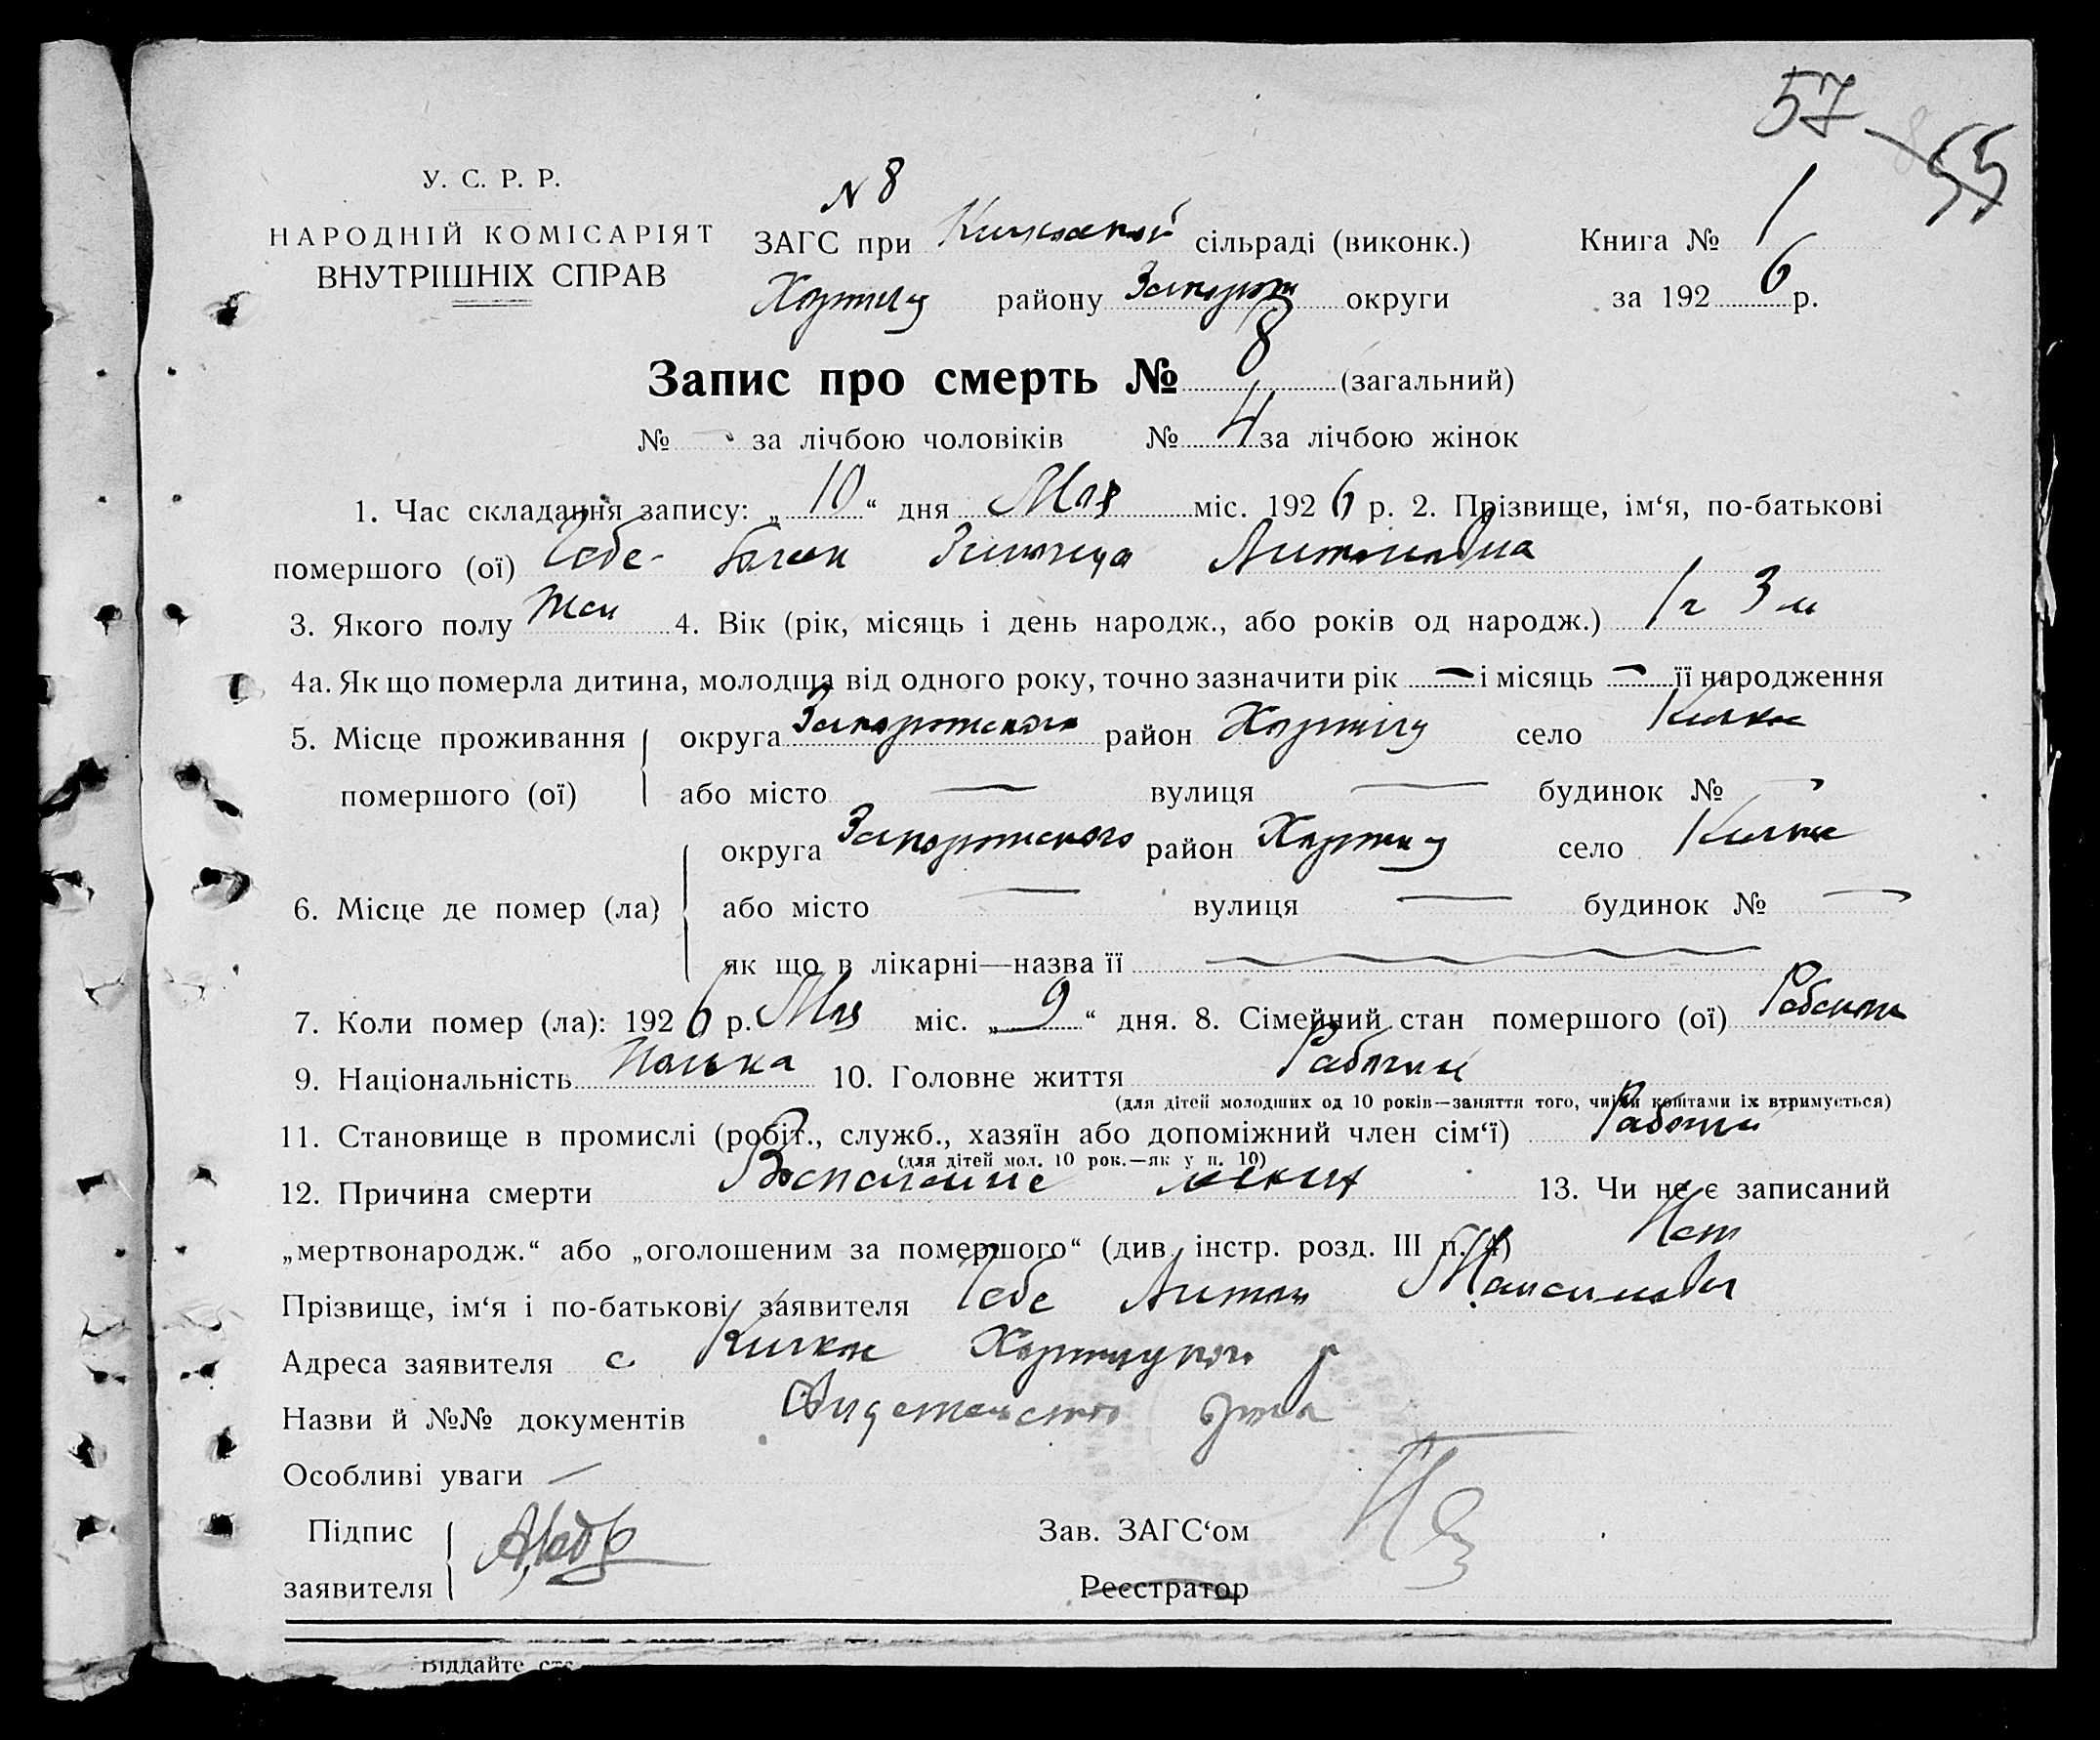 57
55
У. С. Р. Р.
НАРОДНІЙ КОМІСАРІЯТ
ВНУТРІШНІХ СПРАВ
N 8
ЗАГС при сільраді (виконк.)
району Запорож округи
Книга № 1
за 1926 р.
Запис про смерть № 8 (загальний)
№ — за лічбою чоловіків № 4 за лічбою жінок
1. Час складання запису: „10“ дня Мая міс. 1926 р. 2. Прізвище, ім‘я, по-батькові
помершого (ої) Антоновна
3. Якого полу Жен 4. Вік (рік, місяць і день народж., або років од народж.) 1 г 3 м
4а. Як що померла дитина, молодща від одного року, точно зазначити рік — і місяць — її народження
5. Місце проживання округа Запорожского район Хортиц село Кичкас
помершого (ої) або місто — вулиця — будинок № —
6. Місце де помер (ла) округа Запорожского район Хортиц село Кичкас
або місто — вулиця — будинок № —
як що в лікарні—назва її
7. Коли помер (ла): 1926 р. Мая міс. „9“ дня. 8. Сімейний стан помершого (ої)
9. Національність Полька 10. Головне життя Рабочий
(для дітей молодших од 10 років—заняття того, чиїми коштами їх втримується)
11. Становище в промислі (робіт., служб., хазяїн або допоміжний член сім‘ї) Рабочий
(для дітей мол. 10 рок.—як у п. 10)
12. Причина смерти Воспаление легких 13. Чи не є записаний
„мертвонародж.“ або „оголошеним за помершого“ (див. інстр. розд. III п. 4) Нет
Прізвище, ім‘я і по-батькові заявителя Антон
Адреса заявителя с. Кичкас Хортицкого р
Назви й №№ документів
Особливі уваги —
Підпис
заявителя
Зав. ЗАГС‘ом
Реєстратор
Віддайте